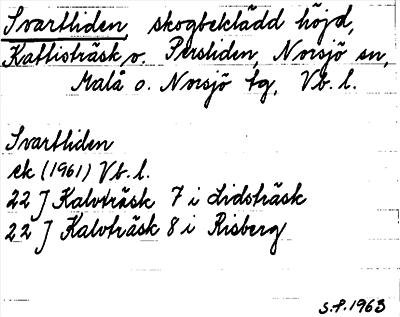 Svartliden, skogbeklädd höjd,
Kattisträsk o. Persliden, Norsjö sn,
Malå o. Norsjö tg, Vb. l.
Svartliden
ek (1961) Vb. l.
22 J Kalvträsk 7 i Lidsträsk
22 J Kalvträsk 8 i Risberg
S.P. 1963